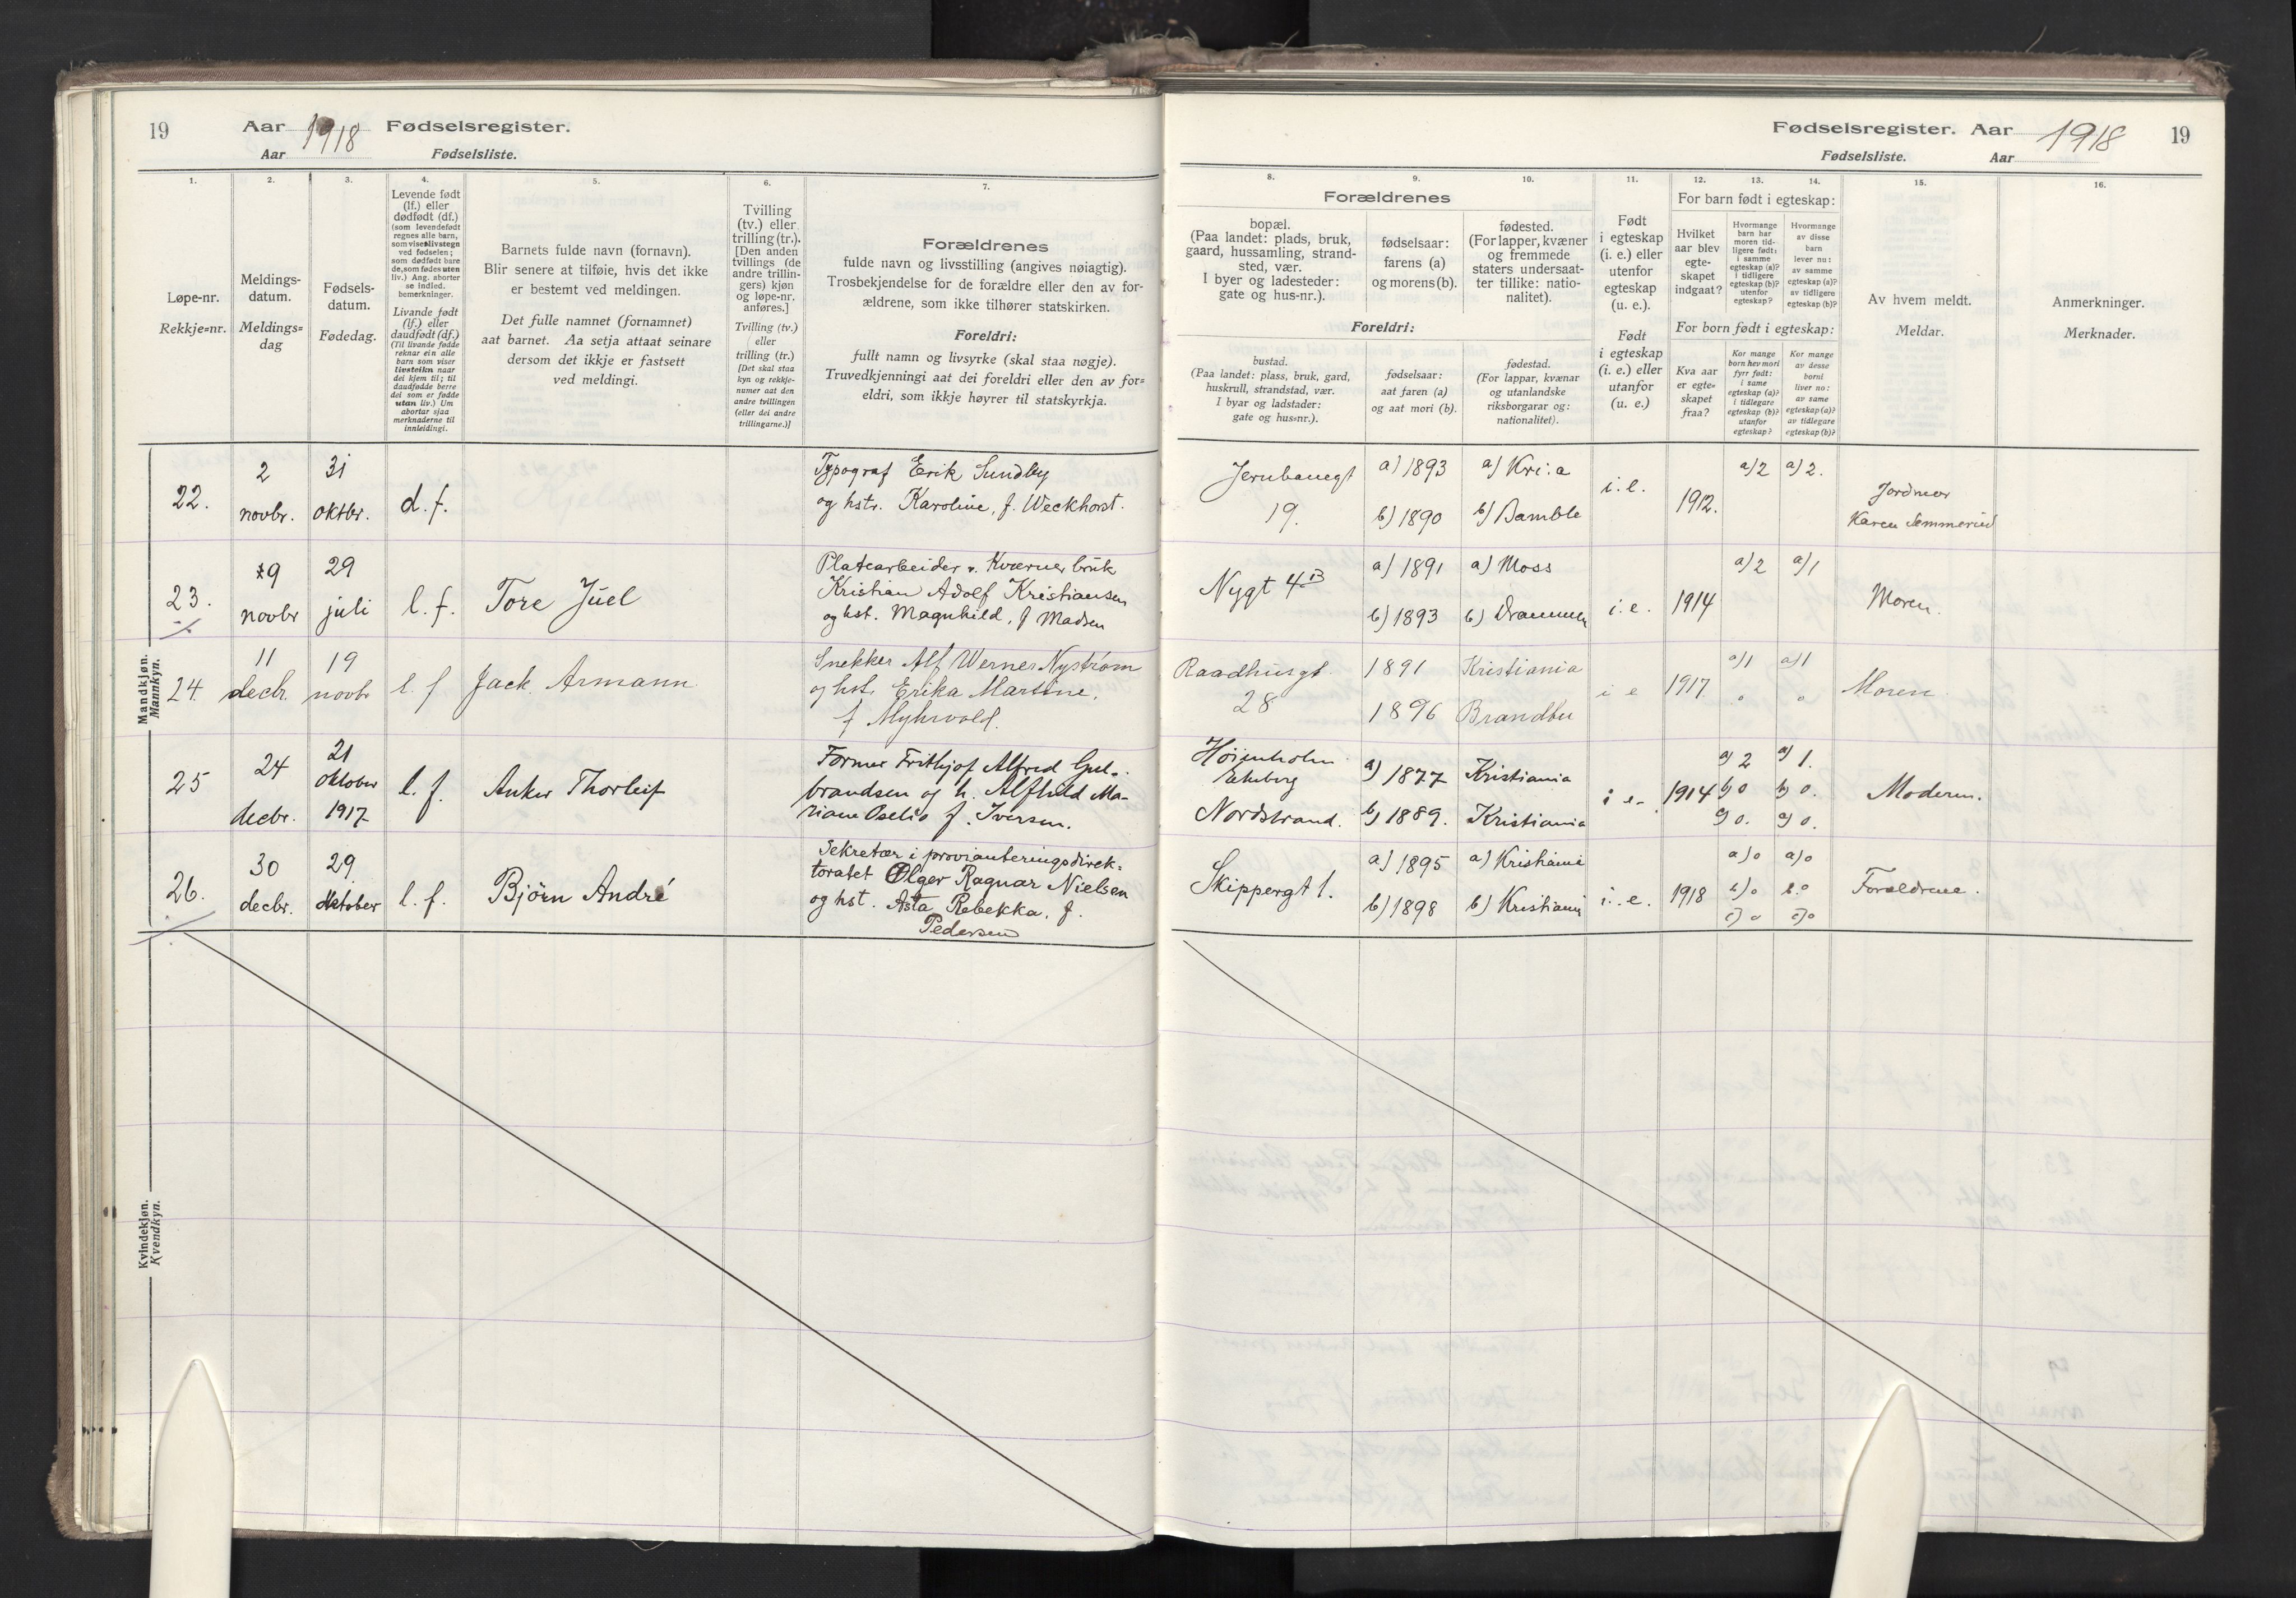 19
Aar 1918 Fødselsregister.
Aar Fødselsliste.
Fødselsregister. Aar 1918
19
Fødselsliste. Aar
1.
2.
3.
4.
5.
6.
7.
Løpe-nr.
Rekkje=nr.
Meldings-
datum.
Meldings=
dag
Fødsels-
datum.
Fødedag.
Levende født
(lf.) eller
dødfødt (df.)
(som levendefødt
regnes alle barn,
som viser livstegn
ved fødselen;
som dødfødt bare
de, som fødes uten
liv.) Ang. aborter
se indled.
bemerkninger.
Livande født
(lf.) eller
daudfødt (df.)
(Til livande fødde
reknar ein alle
barn som viser
livsteikn naar
dei kjem til; til
daudfødde berre
dei som er fødde
utan liv.) Um
abortar sjaa
merknaderne til
innleidingi.
Barnets fulde navn (fornavn).
Blir senere at tilføie, hvis det ikke
er bestemt ved meldingen.
Det fulle namnet (fornamnet)
aat barnet. Aa setja attaat seinare
dersom det ikkje er fastsett
ved meldingi.
Tvilling
(tv.) eller
trilling (tr.).
[Den anden
tvillings (de
andre trillin-
gers) kjøn
og løpe-nr.
anføres.]
Tvilling (tv.)
eller
trilling (tr.)
[Det skal staa
kyn og rekkje-
numer aat den
andre tvillingen
(eller dei andre
trillingarne.)]
Forældrenes
fulde navn og livsstilling (angives nøiagtig).
Trosbekjendelse for de forældre eller den av for-
ældrene, som ikke tilhører statskirken.
Foreldri:
fullt namn og livsyrke (skal staa nøgje).
Truvedkjenningi aat dei foreldri eller den av for=
eldri, som ikkje høyrer til statskyrkja.
8.
9.
10.
11.
12.
13.
14.
15.
16.
Forældrenes
bopæl.
(Paa landet: plads, bruk,
gaard, hussamling, strand-
sted, vær.
I byer og ladesteder:
gate og hus-nr.).
fødselsaar:
farens (a)
og morens (b).
fødested.
(For lapper, kvæner
og fremmede
staters undersaat-
ter tillike: natio-
nalitet).
Foreldri:
bustad.
(Paa landet: plass, bruk, gard,
huskrull, strandstad, vær.
I byar og ladstader:
gate og hus=nr.).
fødselsaar:
aat faren (a)
og aat mori (b).
fødestad.
(For lappar, kvænar
og utanlandske
riksborgarar og:
nationalitet).
Født
i egteskap
(i. e.) eller
utenfor
egteskap
(u. e.).
Født
i egteskap
(i. e.) eller
utanfor
(u. e.)
For barn født i egteskap:
Hvilket
aar blev
egte-
skapet
indgaat?
Hvormange
barn har
moren tid-
ligere født:
i samme
egteskap (a)?
i tidligere
egteskap (b)?
utenfor
egteskap?
Hvormange
av disse
barn
lever nu:
av samme
egteskap (a)?
av tidligere
egteskap (b)?
For born født i egteskap:
Kva aar
er egte=
skapet
fraa?
Kor mange
born hev mori
fyrr født:
i same
egteskap (a)?
i tidlegare
egteskap (b)?
utanfor
egteskap?
Kor mange
av desse
borni
liver no:
av same
egteskap (a)?
av tidlegare
egteskap (b)?
Av hvem meldt.
Meldar.
Anmerkninger.
Merknader.
Mandkjøn.
Mannkyn.
22.
2
novbr.
31
oktbr.
d. f.
Typograf Erik Sundby
og hstr. Karoline, f. Weckhorst.
Jernbanegt
19.
a) 1893
b) 1890
a) Kri:a
b) Bamble
i. e.
1912.
a) 2
a) 2.
Jordmor
Karen
23.
9
novbr
29
juli
l. f.
Tore Juel
Platearbeider v. Kværner bruk
Kristian Adolf Kristiansen
og hst. Magnhild, f Madsen
Nygt 4 B
a) 1891
b) 1893
a) Moss
b) Drammen
i. e.
1914
a) 2
a) 1
Moren.
24.
11
decbr.
19
novbr
l. f
Jack. Armann
Snekker Alf Werner Nystrøm
og hst. Erika Martine,
f. Myhrvold.
Raadhusgt.
28
1891
1896
Kristiania
Brandbu
i e
1917
a) 1
a) 1
Moren
25
24
decbr.
21
oktober
1917
l. f.
Anker Thorleif
Former Frithjof Alfred Gul-
brandsen og h. Alfhild Ma-
riane Oselio f. Iversen.
Høienholm
Ekeberg
Nordstrand.
a) 1877
b) 1889.
Kristiania
Kristiania
i e-
1914
a) 2
b) 0
c) 0.
a) 1.
b) 0.
c) 0.
Moderen.
26.
30
decbr.
29
oktober
l. f.
Bjørn André
Sekretær i provianteringsdirek=
toratet Olger Ragnar Nielsen
og hst. Asta Rebekka, f.
Pedersen
Skippergt 1.
a) 1895
b) 1898
a) Kristiania
b) Kristiania
i. e.
1918
a) 0
b) 0
c) 0
a) 0
b. 0
c) 0
Forældrene.
Kvindekjøn.
Kvendkyn.